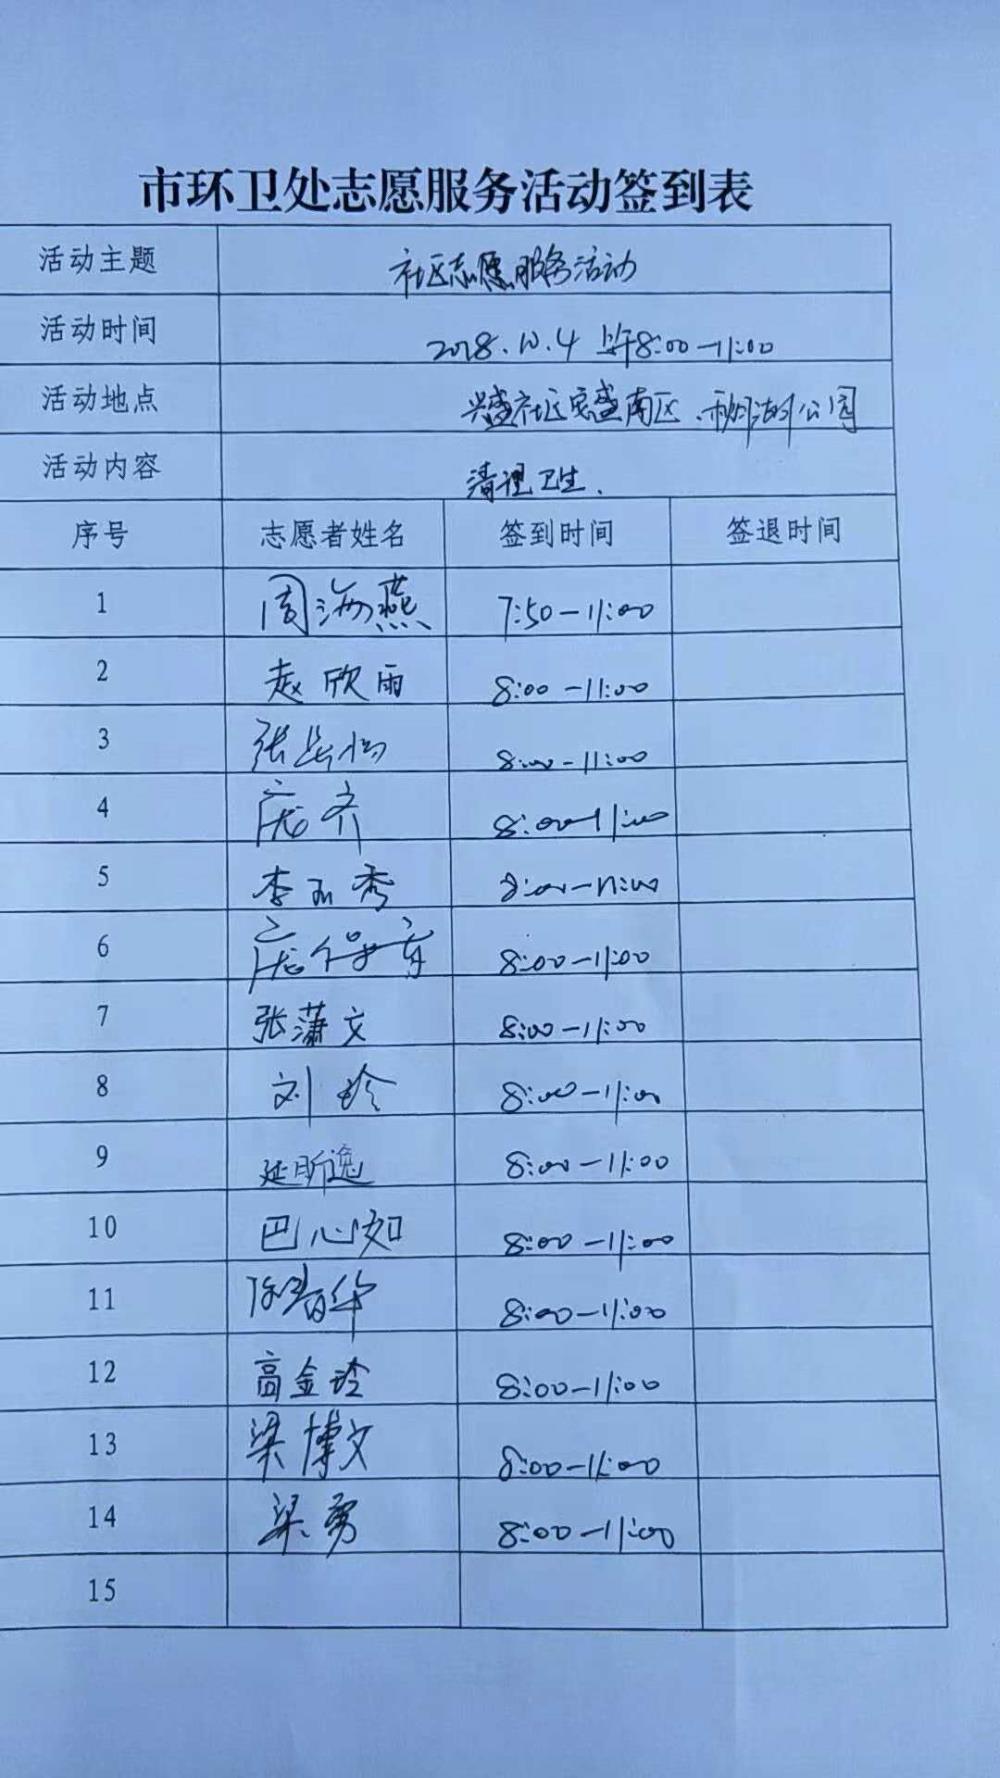 市环卫处志愿服务活动签到表
活动主题 社区志愿服务活动
活动时间 2018.10.4 上午8:00-11:00
活动地点 兴盛社区宏盛南区、秋湖公园
活动内容 清理卫生.
序号 志愿者姓名 签到时间 签退时间
1 周海燕 7:50-11:00
2 赵欣雨 8:00-11:00
3 张 8:00-11:00
4 庞齐 8:00-11:00
5 李玉秀 8:00-11:00
6 庞 8:00-11:00
7 张潇文 8:00-11:00
8 刘玲 8:00-11:00
9 延昕逸 8:00-11:00
10 巴心如 8:00-11:00
11 春华 8:00-11:00
12 高金玲 8:00-11:00
13 梁博文 8:00-11:00
14 梁勇 8:00-11:00
15